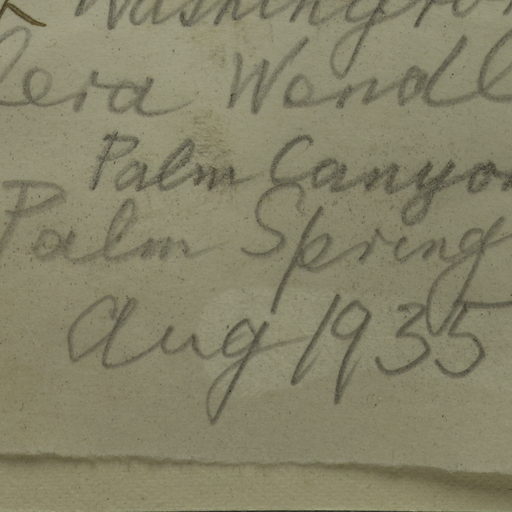 Washington
Palm Canyon
Palm Spring
Aug 1935